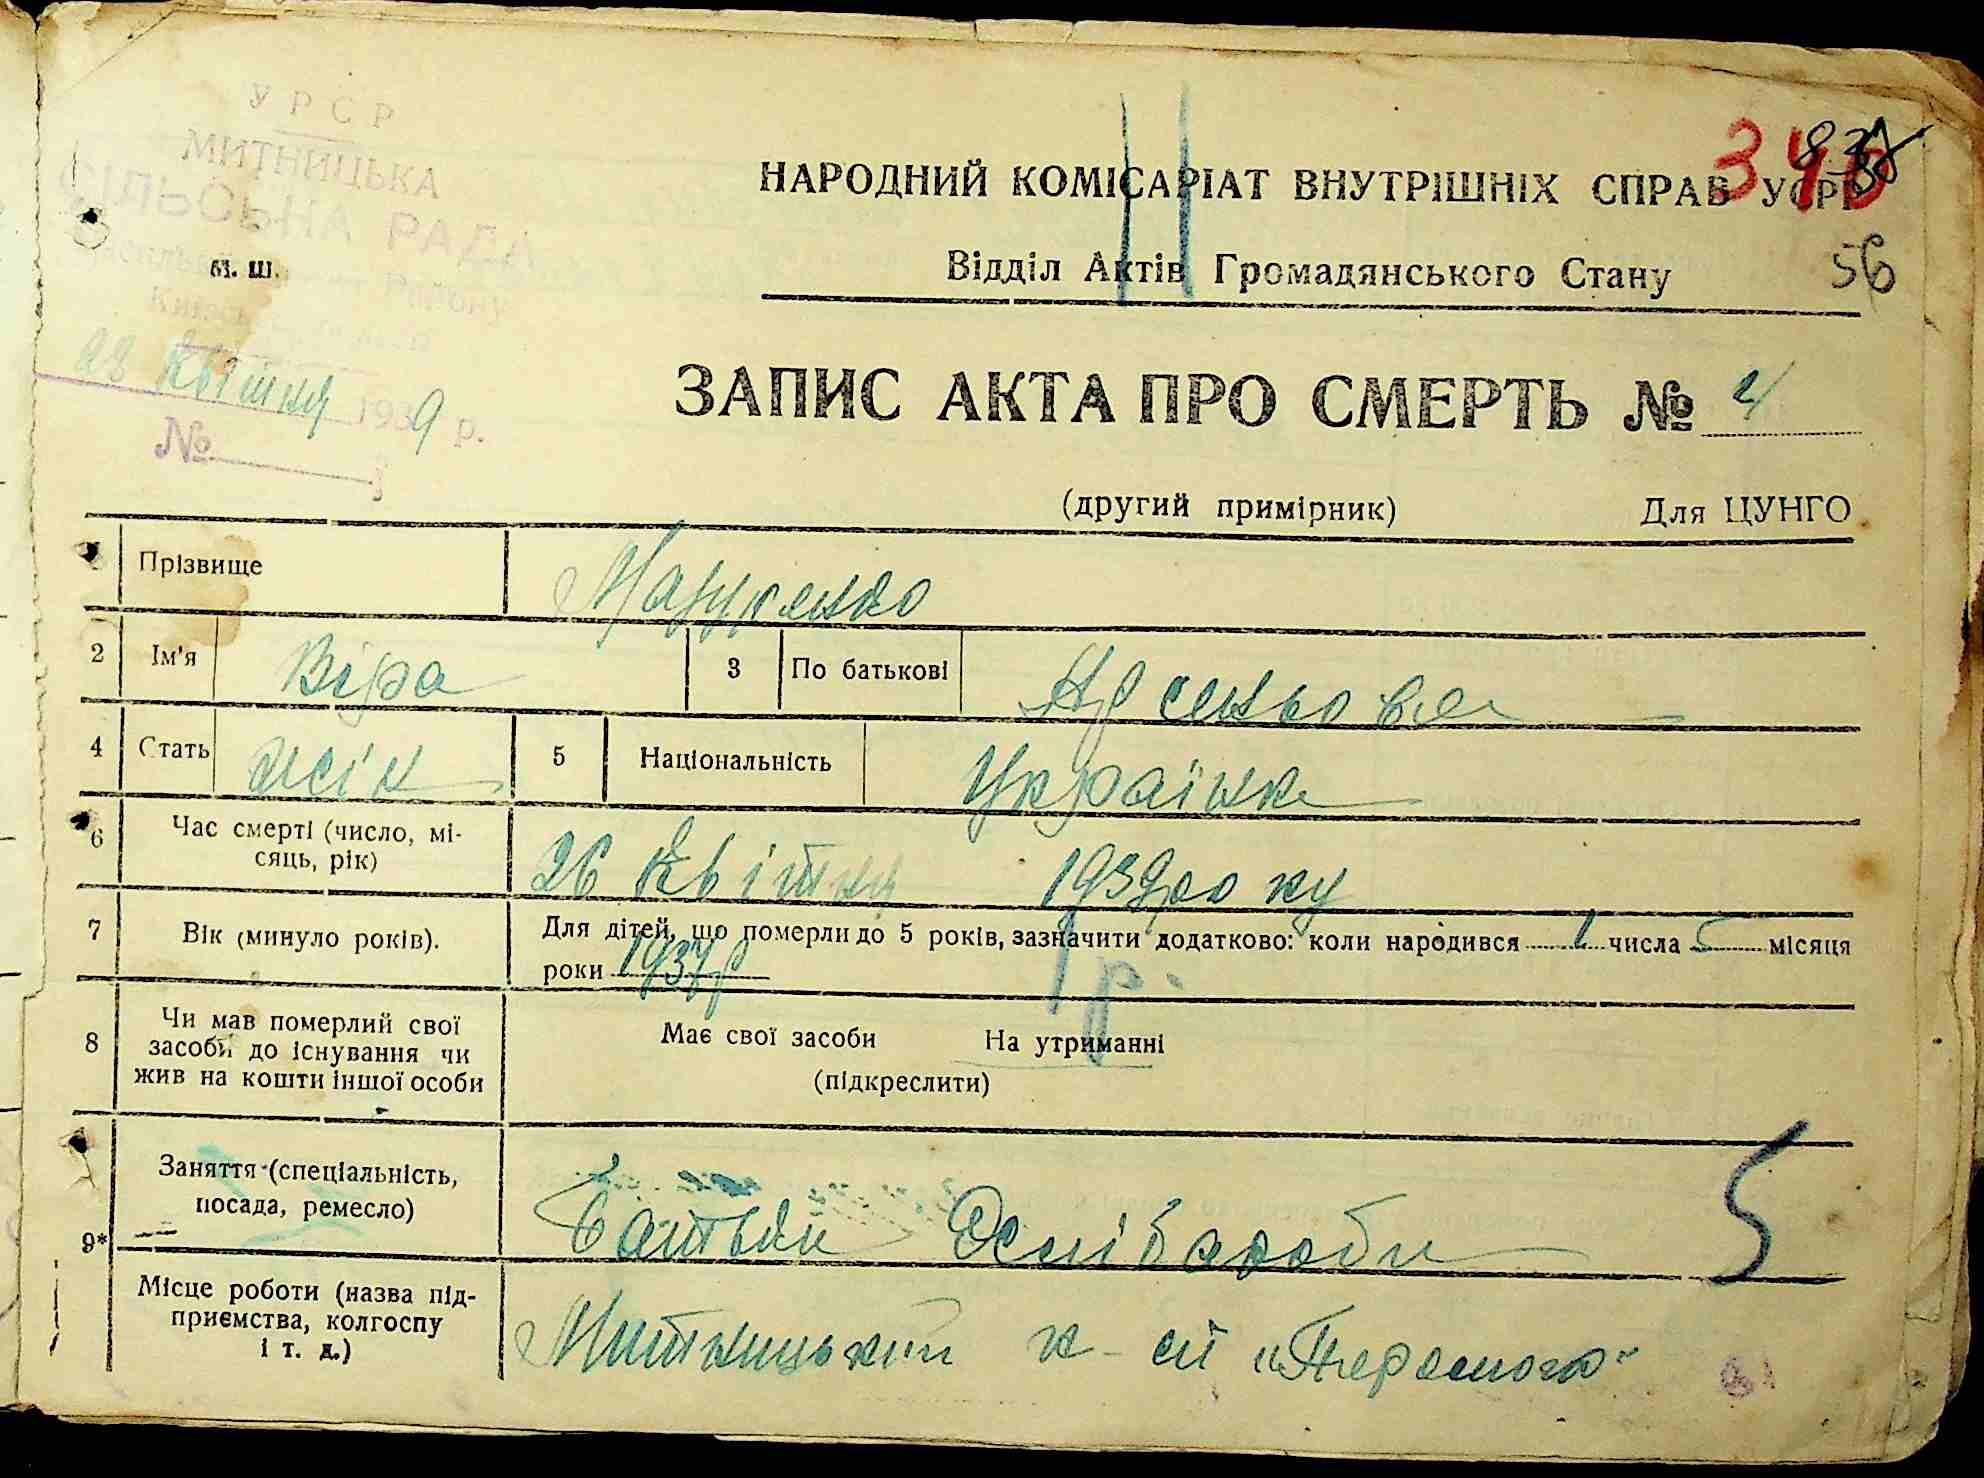 УРСР
МИТНИЦЬКА
СІЛЬСЬКА РАДА
Району
М. Ш.
28 квітня 1939 р.
№
340
838
56
НАРОДНИЙ КОМІСАРІАТ ВНУТРІШНІХ СПРАВ УСРР
Відділ Актів Громадянського Стану
ЗАПИС АКТА ПРО СМЕРТЬ № 4
(другий примірник) Для ЦУНГО
1 Прізвище
2 Ім'я Віра 3 По батькові
4 Стать жін 5 Національність Українка
6 Час смерті (число, мі-
сяць, рік) 26 Квітня 1939 року
7 Вік (минуло років). Для дітей, що померли до 5 років, зазначити додатково: коли народився 1 числа 5 місяця
роки 1937 р 1 р.
8 Чи мав померлий свої
засоби до існування чи
жив на кошти іншої особи
Має свої засоби На утриманні
(підкреслити)
9* Заняття (спеціальність,
посада, ремесло) Батьки 5
Місце роботи (назва під-
приємства, колгоспу
і т. д.) Митницький к-сп „Перемога"